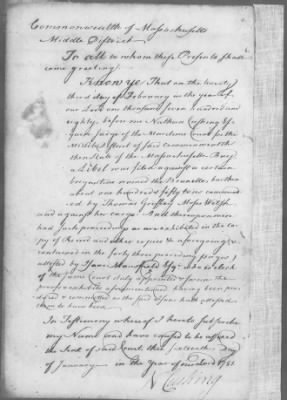 Commonwealth of Massachusetts
Middle District
To all to whom these Presents shall
come greeting
Know ye That on the twenty
third day of February in the year of
our Lord one thousand seven hundred and
eighty before me Nathan Cushing Es
quire Judge of the Maritime Court for the
Middle District of said commonwealth
then State of the Massachusetts Bay
a Libel was filed against a certain
brigantine named the Brunette burthen
about one hundred fifty tons command
ed by Thomas Griffin
and against her cargo And thereupon were
had such proceedings as are exhibited in the co
py of Record and other copies
contained in the forty three preceeding pages
attested by Isaac Mansfield Esqr who is clerk
of the same Court duly appointed & sworn the
aforementioned having been pro
duced & committed to the said Isaac
them to have been
In Testimony whereof I hereto subscribe
my Name and have caused to be affixed
the Seal of said Court this sixteenth day
of January in the year of our Lord 1781
N Cushing